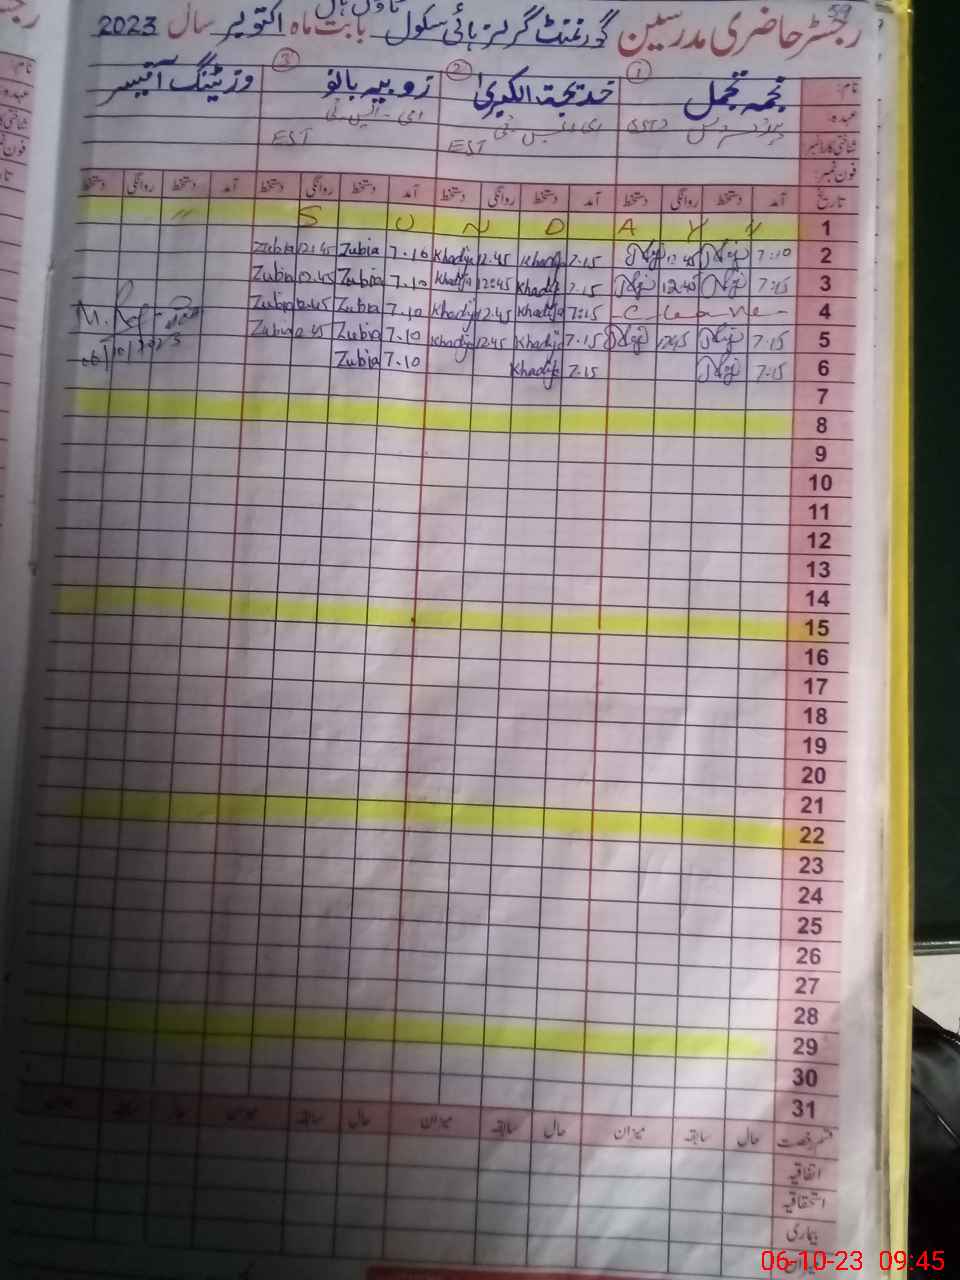 59
رجسٹر حاضری مدرسین گورنمنٹ گرلز ہائی سکول ٹاؤن ہال بابت ماہ اکتوبر سال 2023
نام: نجمہ تجمل ① خدیجۃ الکبریٰ ② زوبیہ بانو ③ وزیٹنگ آفیسر
عہدہ: ای - ایس - ٹی
شناختی کارڈ نمبر EST EST
فون نمبر:
تاریخ آمد دستخط روانگی دستخط آمد دستخط روانگی دستخط آمد دستخط روانگی دستخط آمد دستخط روانگی دستخط
1 S U N D A Y
2 7:10 12.45 7.15 Khadija 12.45 Khadija 7.10 Zubia 12.45 Zubia
3 7:15 12.45 7.15 Khadija 12:45 Khadija 7.10 Zubia 12.45 Zubia
4 - C leave - 7:15 Khadija 12.45 Khadija 7.10 Zubia 12.45 Zubia
5 7.15 12.45 7.15 Khadija 12.45 Khadija 7.10 Zubia 12.45 Zubia
06/10/2023
6 7.15 7.15 Khadija 7.10 Zubia
7
8
9
10
11
12
13
14
15
16
17
18
19
20
21
22
23
24
25
26
27
28
29
30
31
قسم رخصت حال سابقہ میزان حال سابقہ میزان حال سابقہ میزان حال سابقہ میزان
اتفاقیہ
استحقاقیہ
بیماری
میزان
06-10-23 09:45